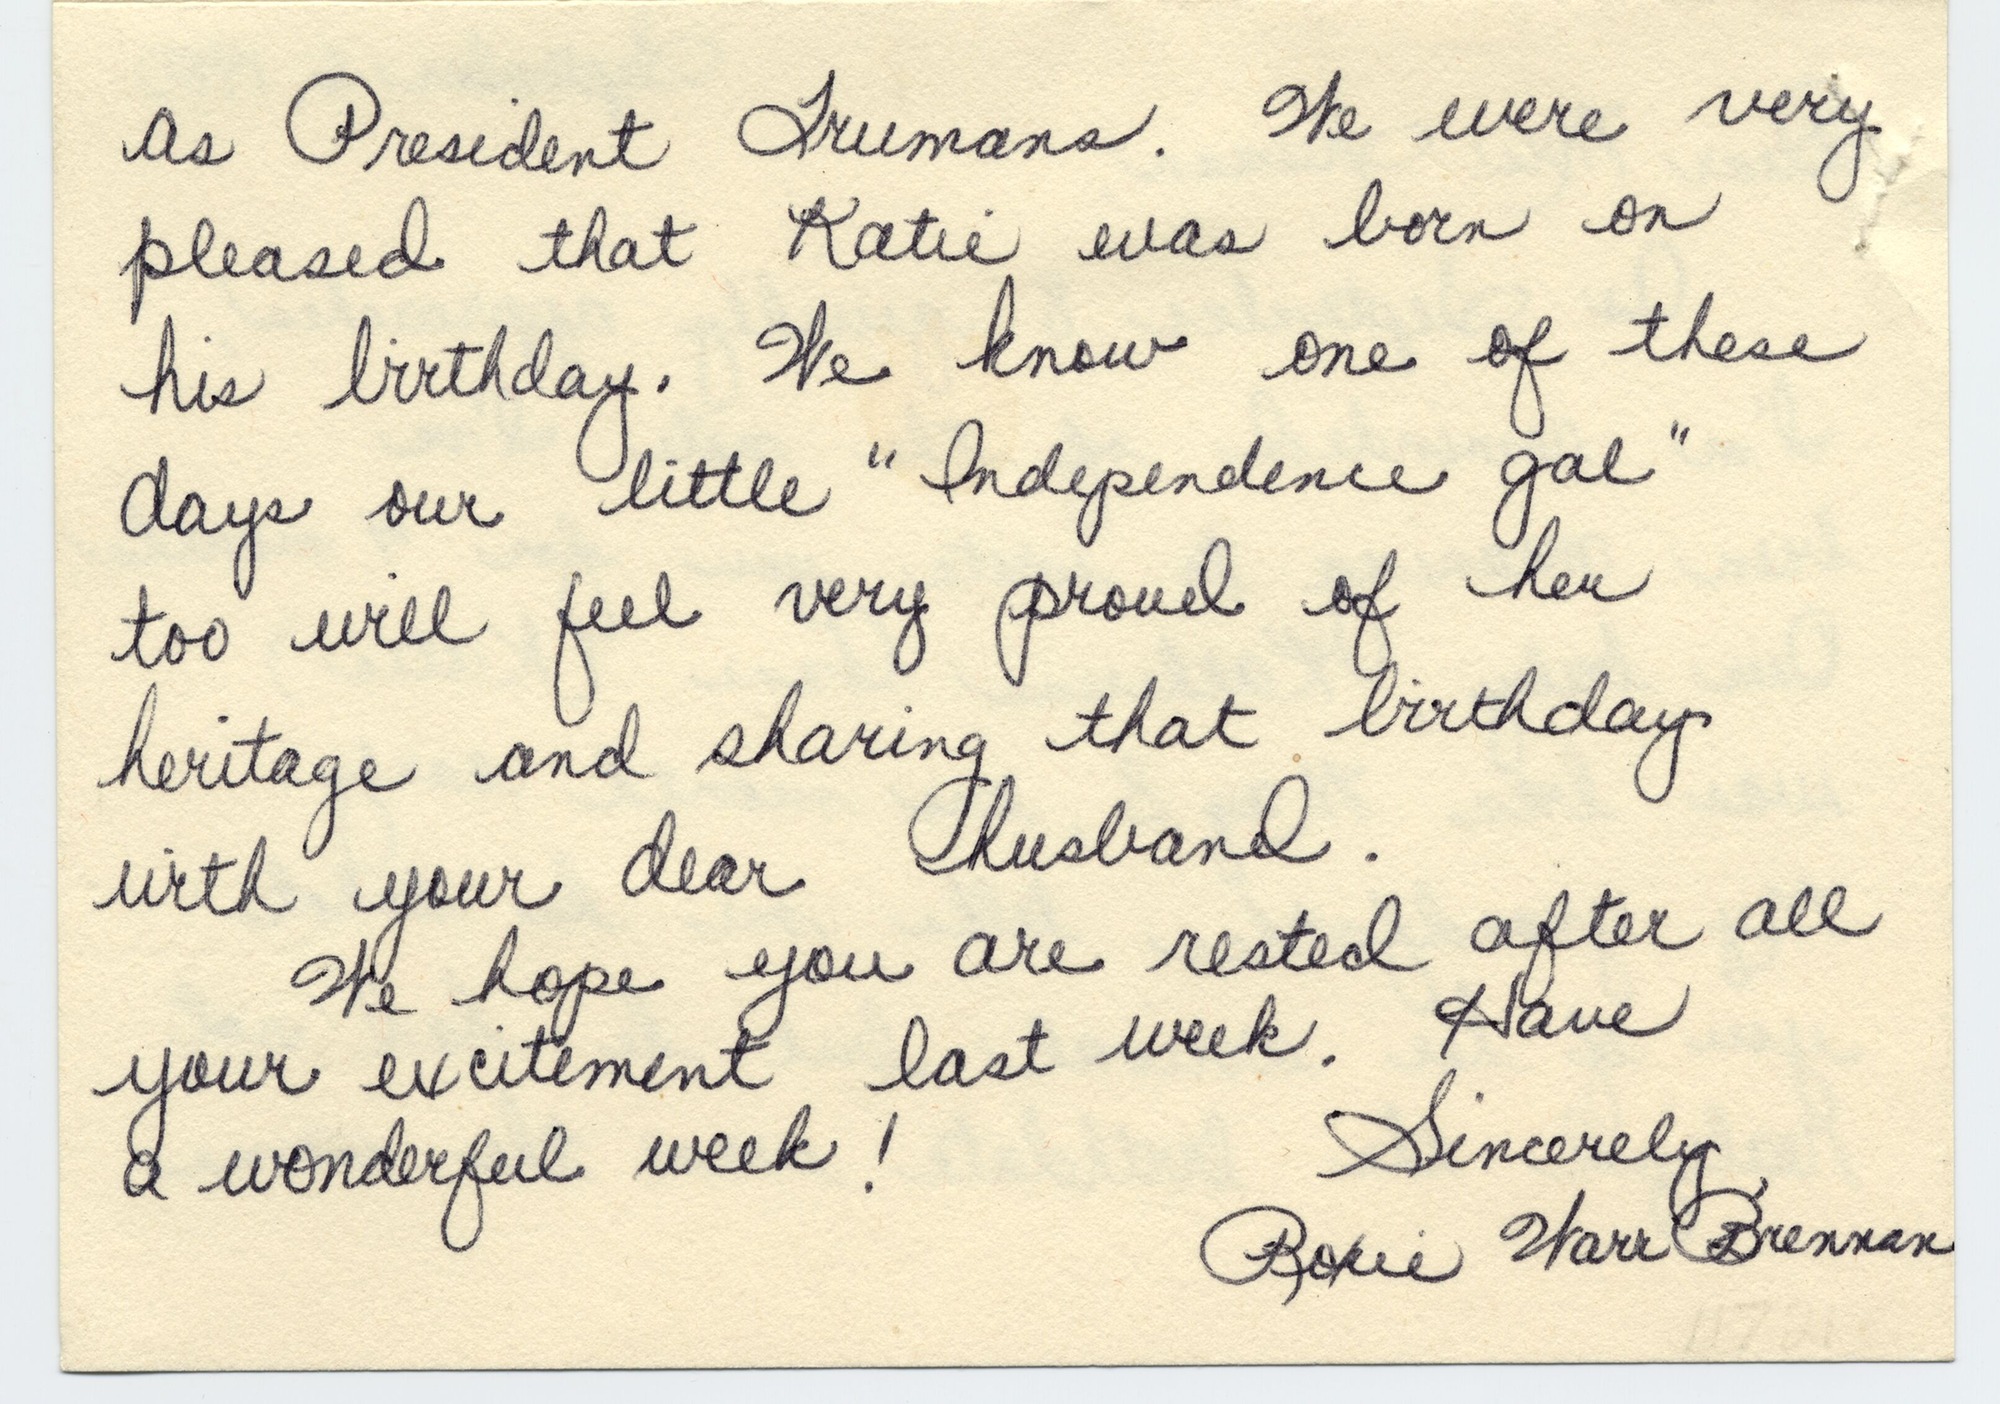 as President Trumans. We were very
pleased that Katie was born on
his birthday. We know one of these
days our little "Independence gal"
too will feel very proud of her
heritage and sharing that birthday
with your dear husband.
We hope you are rested after all
your excitement last week. Have
a wonderful week!
Sincerely,
Roxie Warr Brennan